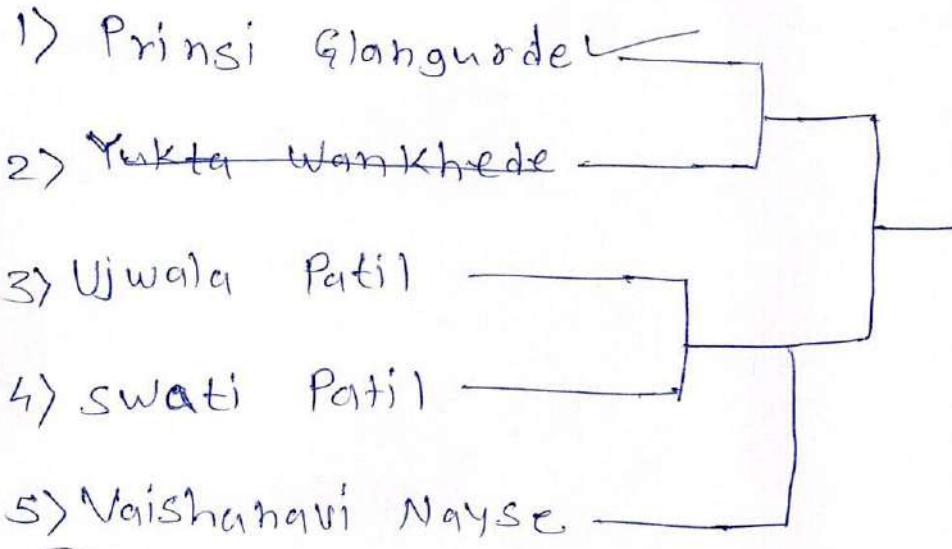 1) Prinsi Glangurde
2) Yukta Wankhede
3) Ujwala Patil
4) swati Patil
5) Vaishanavi Nayse